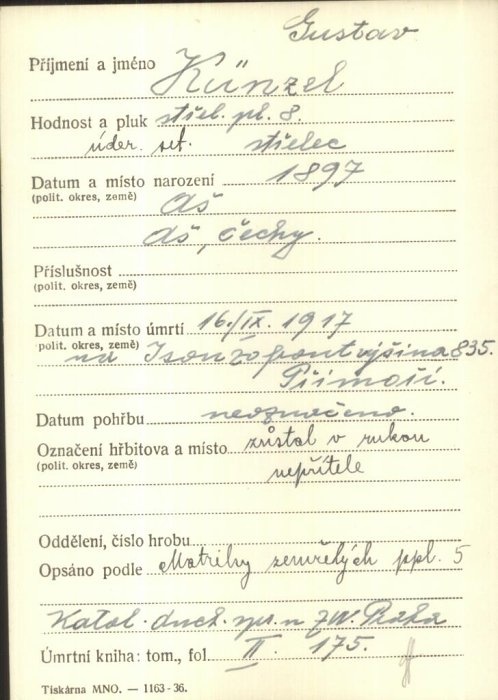 Gustav
Příjmení a jméno Künzel
Hodnost a pluk střel. pl. 8.
úder. set. střelec
Datum a místo narození 1897
(polit. okres, země) Aš
Aš, Čechy.
Příslušnost
(polit. okres, země)
Datum a místo úmrtí 16./IX. 1917
(polit. okres, země) na Isonzofront výšina 835.
Přímoří.
Datum pohřbu neoznačeno.
Označení hřbitova a místo zůstal v rukou
(polit. okres, země) nepřítele
Oddělení, číslo hrobu
Opsáno podle Matriky zemřelých ppl. 5
Katol. duch. spr. n ZVV. Praha
Úmrtní kniha: tom., fol. II. 175.
Tiskárna MNO. — 1163-36.